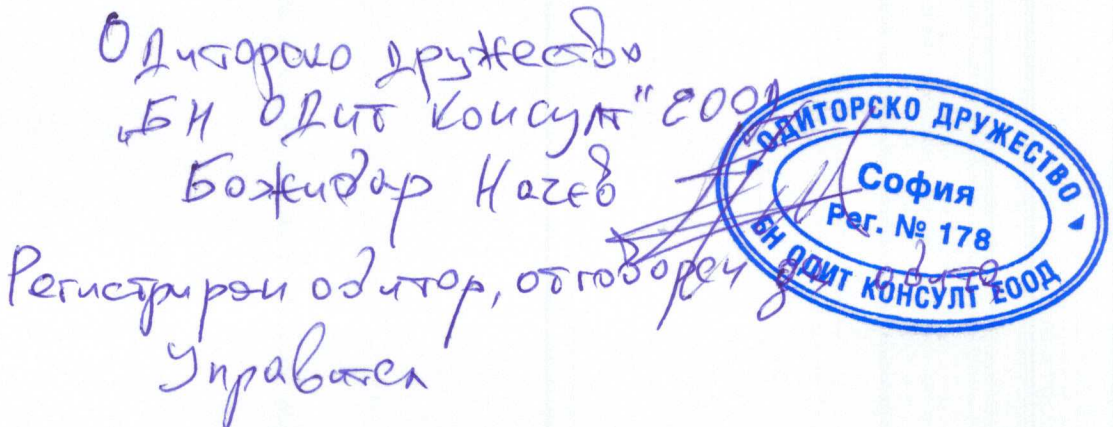 Одиторско дружество
„БН Одит Консулт" ЕООД
Божидар Начев
Регистриран одитор, отговорен за одита,
Управител
ОДИТОРСКО ДРУЖЕСТВО
София
Рег. № 178
БН ОДИТ КОНСУЛТ ЕООД